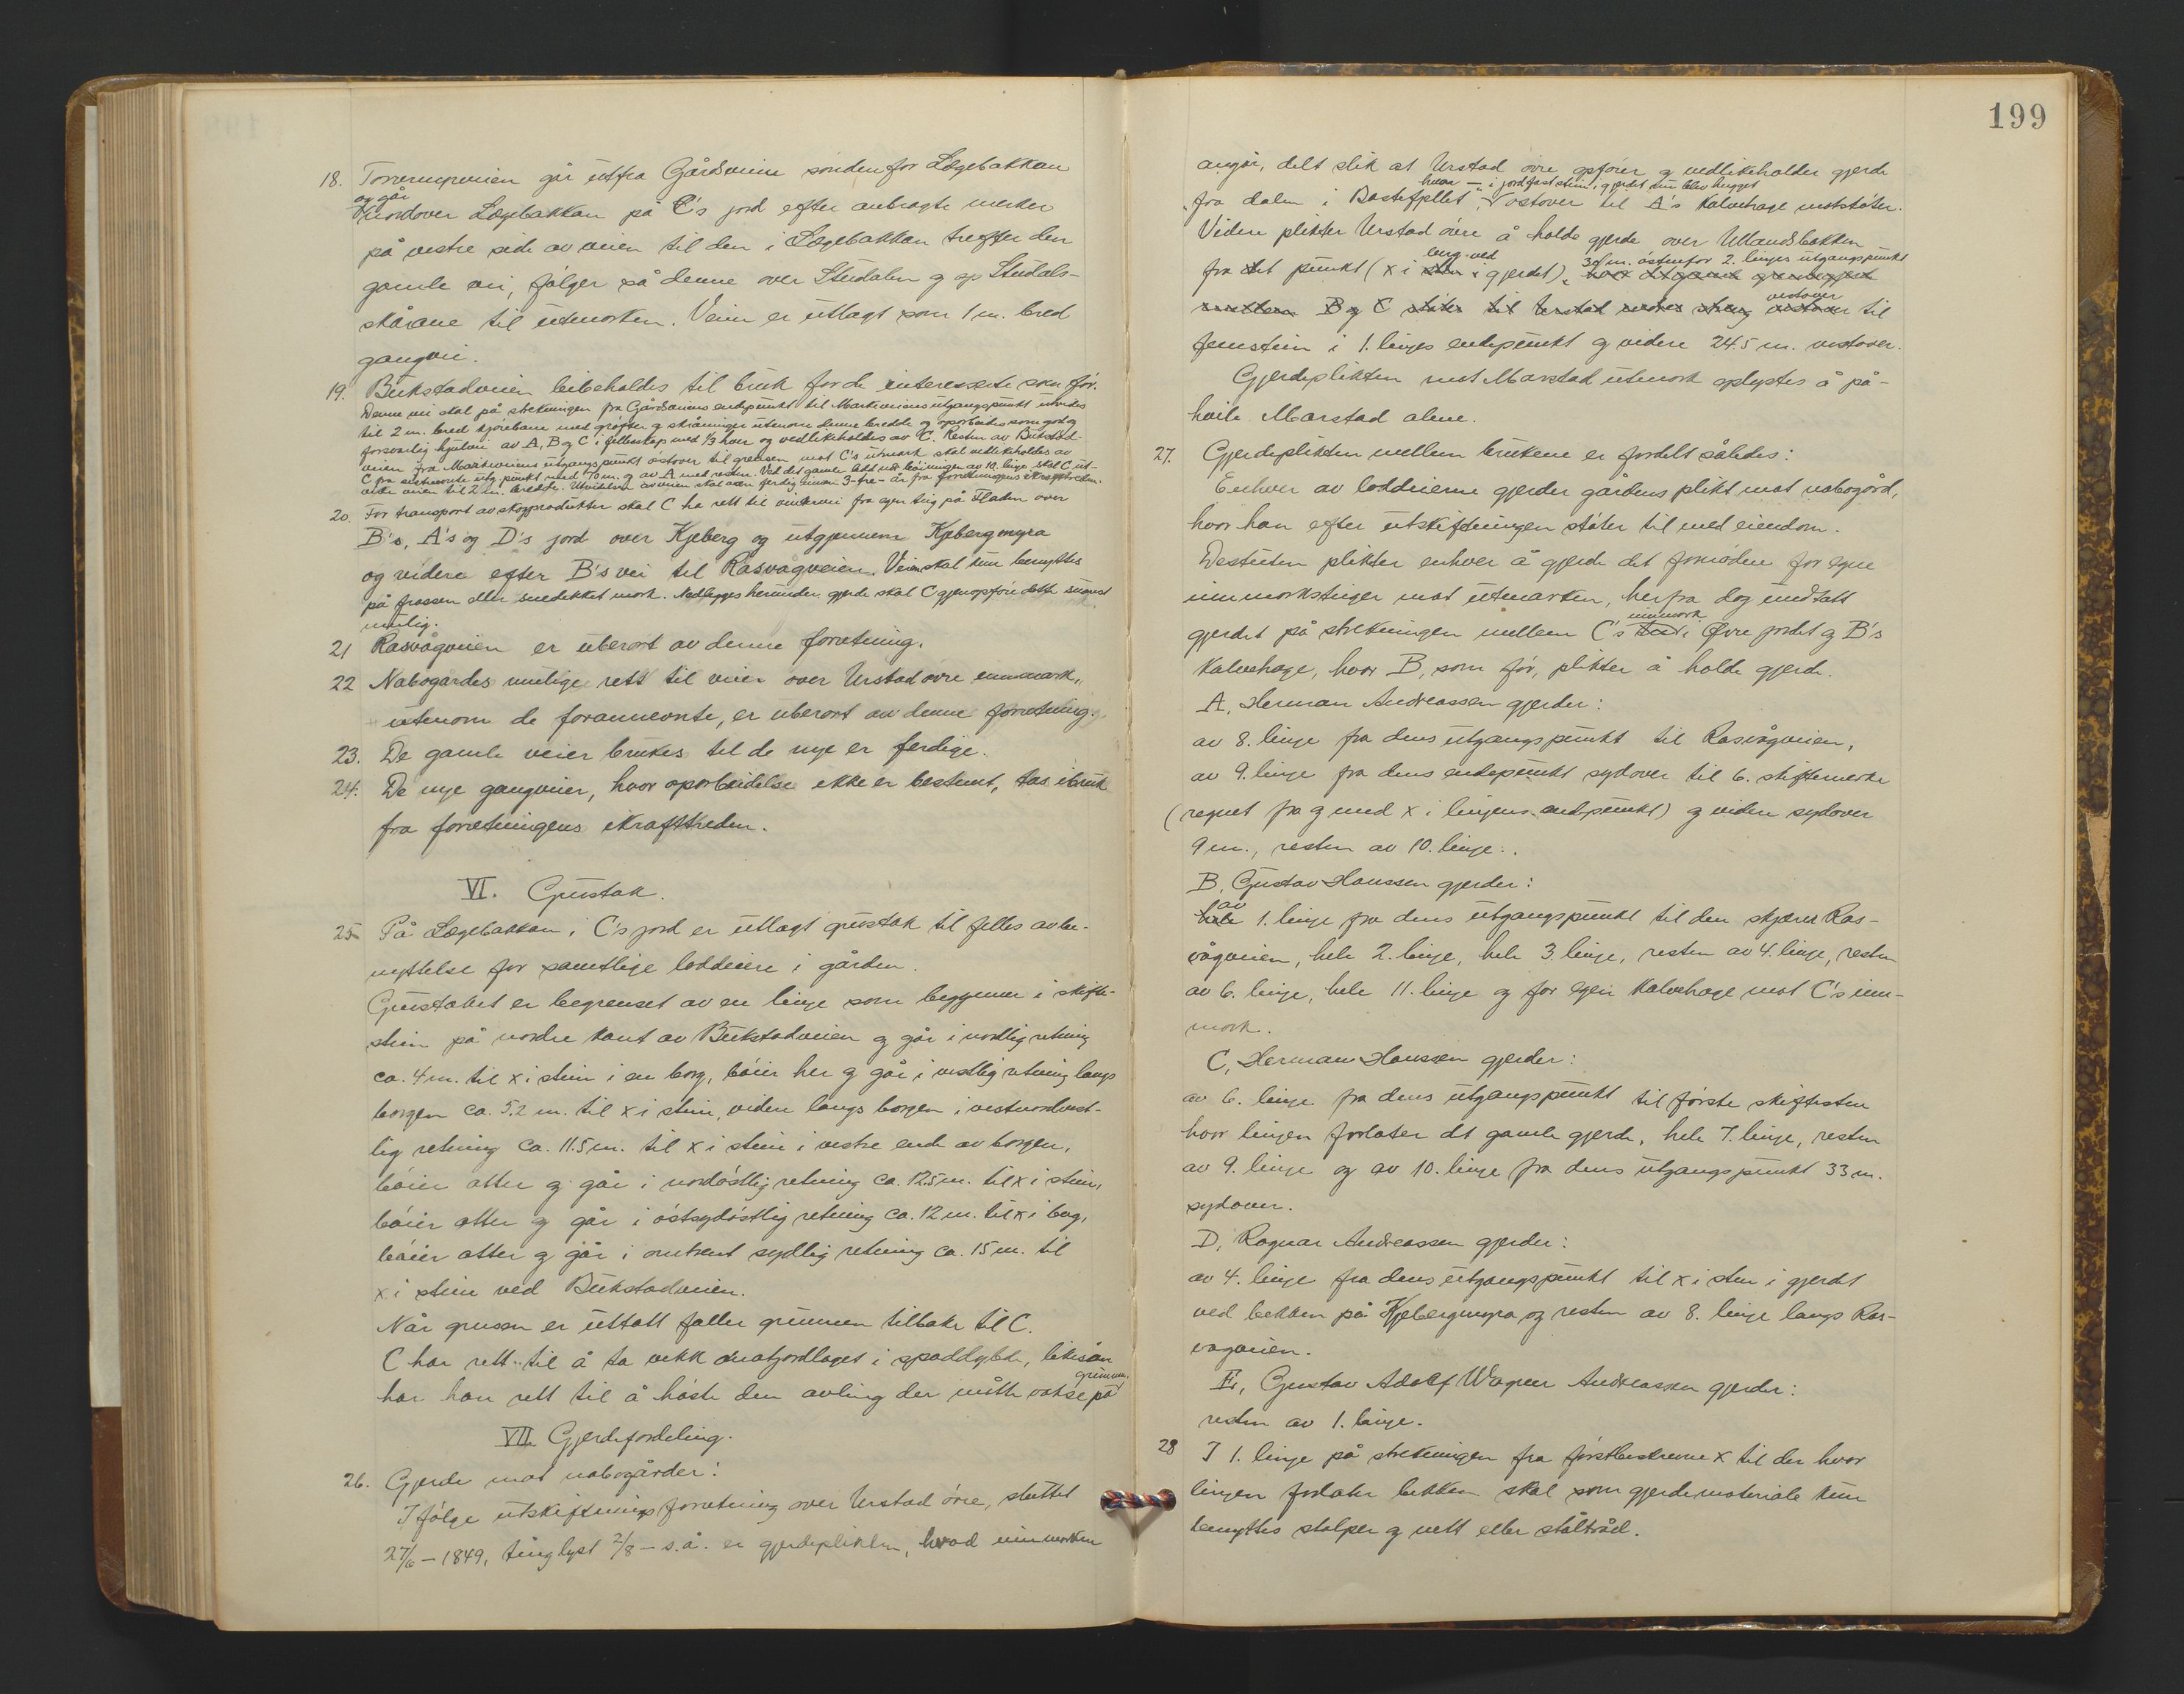 18. Torvemyrveien går utfra Gårdsveien søndenfor Lægebakkan
og går
nordover Lægebakkan på C's jord efter anbragte merker
på vestre side av veien til den i Lægebakkan treffer den
gamle vei, følger så denne over Studalen og op Studals-
skårane til utmarken. Veien er utlagt som 1 m. bred
gangvei.
19. Bukstadveien beibeholdes til bruk for de interesserte som før.
Denne vei skal på strekningen fra Gårdsveiens endepunkt til Markveiens utgangspunkt utvides
til 2 m. bred kjørebane med grøfter og skråninger utenom denne bredde og oparbeides som god og
forsvarlig hjulvei av A, B og C i fellesskap med 1/3 hver og vedlikeholdes av C. Resten av Bukstad-
veien fra Markveiens utgangspunkt østover til grensen mot C's utmark skal vedlikeholdes av
C fra sistnevnte utg. punkt med 70 m. og av A med resten. Ved det gamle ledd ved bøiningen av 10. linje skal C ut-
vide veien til 2 m. bredde. Utvidelsen av veien skal være ferdig innen 3-tre- år fra forretningens ikrafttreden.
20. For transport av skogprodukter skal C ha rett til vintervei fra egen teig på Fladen over
B's, A's og D's jord over Kjeberg og utgjennem Kjebergmyra
og videre efter B's vei til Rasvågveien. Veien skal kun benyttes
på frossen eller snedekket mark. Nedlegges herunder gjerde skal C gjenopføre dette snarest
mulig.
21 Rasvågveien er uberørt av denne forretning.
22 Nabogardes mulige rett til veier over Urstad øvre innmark,
utenom de forannevnte, er uberørt av denne forretning.
23. De gamle veier brukes til de nye er ferdige.
24. De nye gangveier, hvor oparbeidelse ikke er bestemt, tas i bruk
fra forretningens ikrafttreden.
VI. Grustak.
25 På Lægebakkan i C's jord er utlagt grustak til felles avbe-
nyttelse for samtlige loddeiere i gården.
Grustaket er begrenset av en linje som begynner i skifte-
stein på nordre kant av Bukstadveien og går i nordlig retning
ca. 4 m. til x i stein i en borg, bøier her og går i vestlig retning langs
borgen ca. 5.2 m. til x i stein, videre langs borgen i vestnordvest-
lig retning ca. 11.5 m. til x i stein i vestre ende av borgen,
bøier atter og går i nordøstlig retning ca. 12.5 m. til x i stein,
bøier atter og går i østsydøstlig retning ca. 12 m. til x i berg,
bøier atter og går i omtrent sydlig retning ca. 15 m. til
x i stein ved Bukstadveien.
Når grusen er uttatt faller grunnen tilbake til C.
C har rett til å ta vekk matjordlaget i spaddybde, likesån
grunnen.
har han rett til å høste den avling der måtte vokse på
VII Gjerdefordeling.
26. Gjerde mot nabogårder:
Ifølge utskiftningsforretning over Urstad øvre, sluttet
27/6 - 1849, tinglyst 2/8 - s.å. er gjerdeplikten, hvad innmarken
199
angår, delt slik at Urstad øvre opfører og vedlikeholder gjerde
hvor - i jordfast stein i gjerdet nu blev hugget
fra dalen i Bastefjellet, østover til A's kalvehage motstøter.
Videre plikter Urstad øvre å holde gjerde over Ullandsbakken
berg ved 30 m. østenfor 2. linjes utgangspunkt
fra det punkt (x i i gjerdet),
B og C til Urstad vestover til
jernstein i 1. linjes endepunkt og videre 24.5 m. vestover.
Gjerdeplikten mot Marstad utmark oplystes å på-
hvile Marstad alene.
27. Gjerdeplikten mellem brukene er fordelt således:
Enhver av loddeierne gjerder gårdens plikt mot nabogård,
hvor han efter utskiftningen støter til med eiendom.
Desuten plikter enhver å gjerde det fornødne for egne
innmarksteiger mot utmarken, herfra dog undtatt
innmark
gjerdet på strekningen mellem C's i Øvre jordet og B's
kalvehage, hvor B, som før, plikter å holde gjerde.
A, Herman Andreassen gjerder:
av 8. linje fra dens utgangspunkt til Rasvågveien,
av 9. linje fra dens endepunkt sydover til 6. skiftemerke
(regnet fra og med x i linjens endepunkt) og videre sydover
9 m., resten av 10. linje.
B, Gustav Hanssen gjerder:
av
hele 1. linje fra dens utgangspunkt til den skjærer Ras-
vågveien, hele 2. linje, hele 3. linje, resten av 4. linje, resten
av 6. linje, hele 11. linje og for egen kalvehage mot C's inn-
mark.
C, Herman Hanssen gjerder:
av 6. linje fra dens utgangspunkt til første skiftesten
hvor linjen forlater det gamle gjerde, hele 7. linje, resten
av 9. linje og av 10. linje fra dens utgangspunkt 33 m.
sydover.
D, Ragnar Andreassen gjerder:
av 4. linje fra dens utgangspunkt til x i sten i gjerdet
ved bekken på Kjebergmyra og resten av 8. linje langs Ras-
vågveien.
E, Gustav Adolf Wagner Andreassen gjerder:
resten av 1. linje.
28 I 1. linje på strekningen fra førstbeskrevne x til der hvor
linjen forlater bekken skal som gjerdemateriale kun
benyttes stolper og nett eller ståltråd.